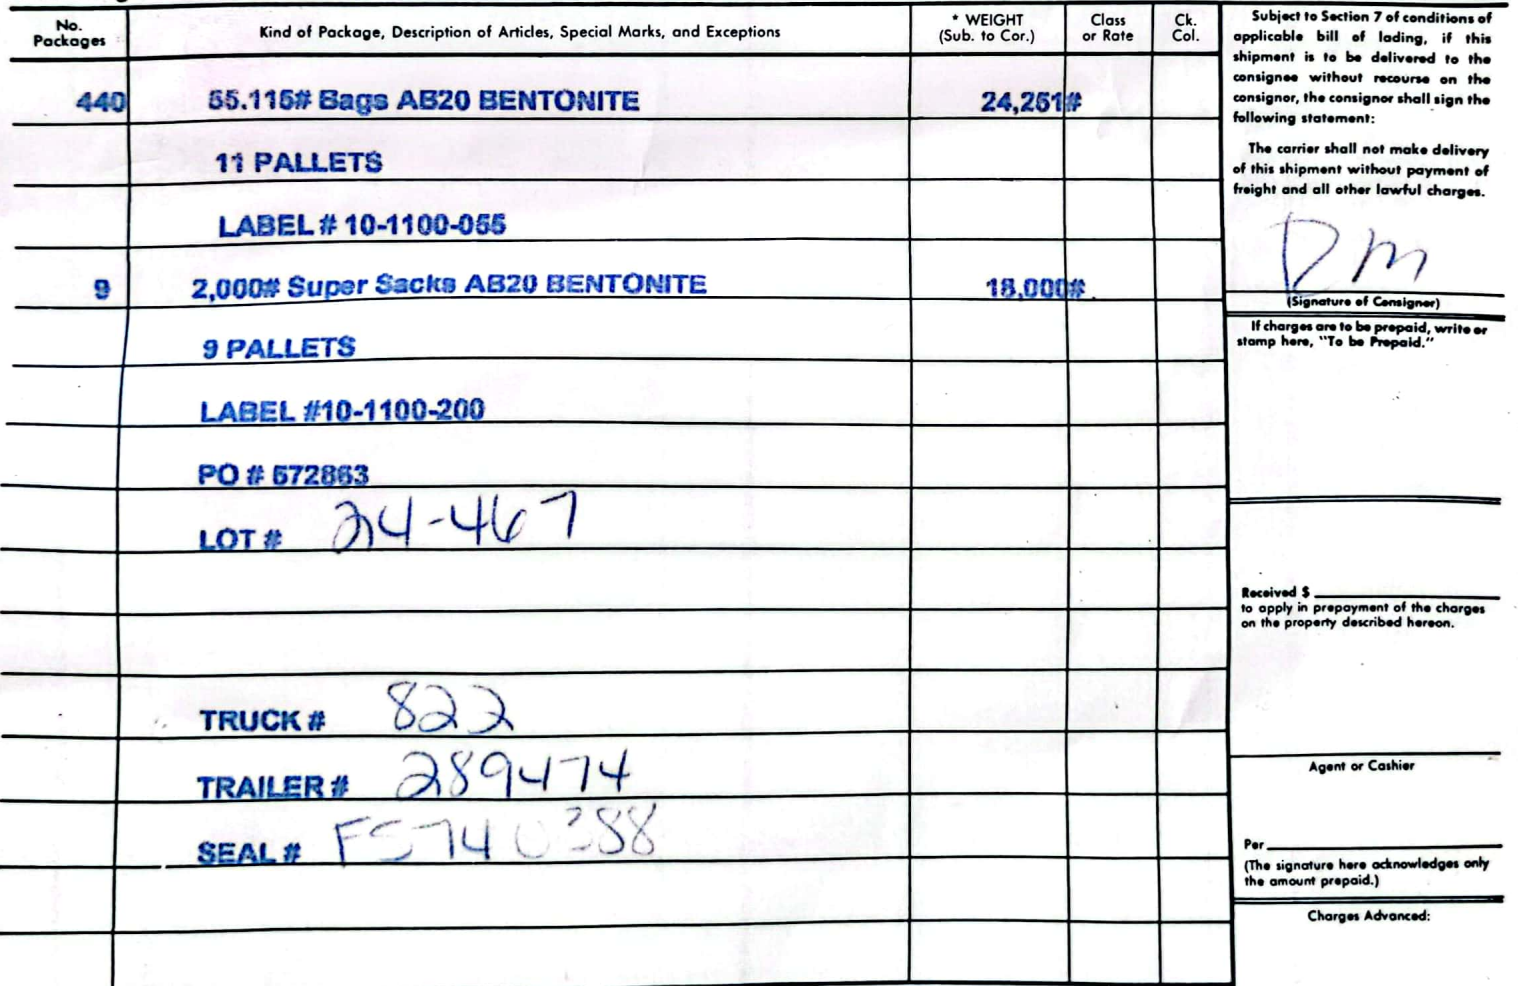 No. Packages
Kind of Package, Description of Articles, Special Marks, and Exceptions
* WEIGHT (Sub. to Cor.)
Class or Rate
Ck. Col.
440 55.115# Bags AB20 BENTONITE 24,251#
11 PALLETS
LABEL # 10-1100-055
9 2,000# Super Sacks AB20 BENTONITE 18,000#
9 PALLETS
LABEL #10-1100-200
PO # 572863
LOT # 24-467
TRUCK # 822
TRAILER # 289474
SEAL #
Subject to Section 7 of conditions of
applicable bill of lading, if this
shipment is to be delivered to the
consignee without recourse on the
consignor, the consignor shall sign the
following statement:
The carrier shall not make delivery
of this shipment without payment of
freight and all other lawful charges.
DM
(Signature of Consigner)
If charges are to be prepaid, write or
stamp here, "To be Prepaid."
Received $
to apply in prepayment of the charges
on the property described hereon.
Agent or Cashier
Per
(The signature here acknowledges only
the amount prepaid.)
Charges Advanced: